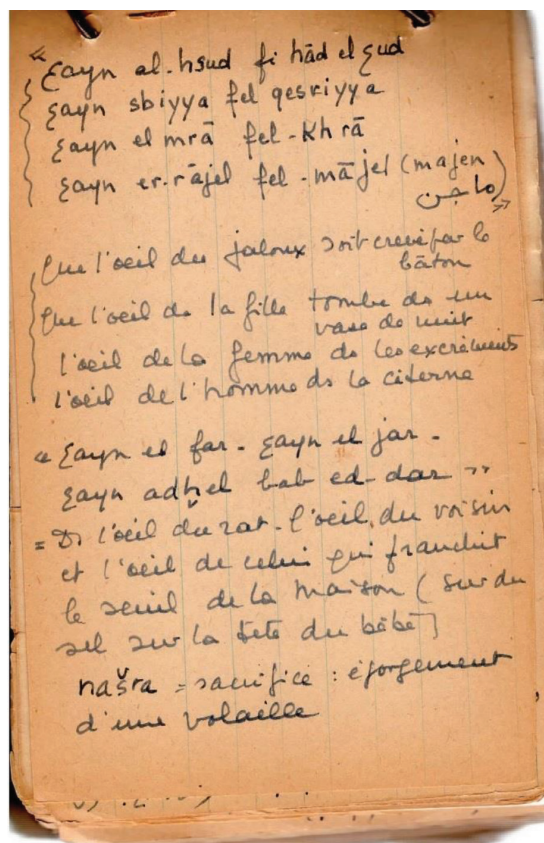 « ξayn al-ḥsud fi hād el ξud
ξayn sbiyya fel qesriyya
ξayn el mrā fel-khrā
ξayn er-rājel fel-mājel (majen)
ماجن »
Que l'oeil du jaloux soit crevé par le
bâton
Que l'oeil de la fille tombe ds un
vase de nuit
l'oeil de la femme ds les excréments
l'oeil de l'homme ds la citerne
« ξayn el far - ξayn el jar -
ξayn adḫel bab ed-dar »
= l'oeil du rat - l'oeil du voisin
et l'oeil de celui qui franchit
le seuil de la maison (sur du
sel sur la tête du bébé)
našra = sacrifice : égorgement
d'une volaille